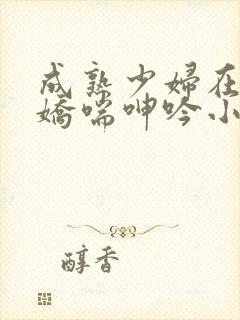 成熟少婦在
嬌喘呻吟小
醇香